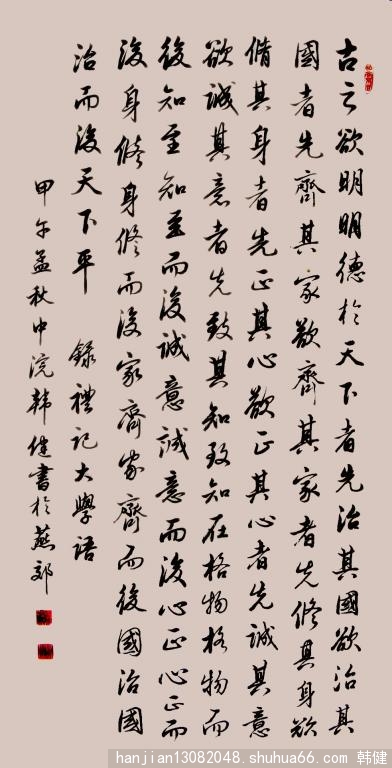 古之欲明明德於天下者先治其國欲治其
國者先齊其家欲齊其家者先修其身欲
脩其身者先正其心欲正其心者先誠其意
欲誠其意者先致其知致知在格物格物而
後知至知至而後誠意誠意而後心正心正而
後身修身修而後家齊家齊而後國治國
治而後天下平 錄禮記大學語
甲午孟秋中浣韓健書於燕郊
hanjian13082048.shuhua66.com 韩健